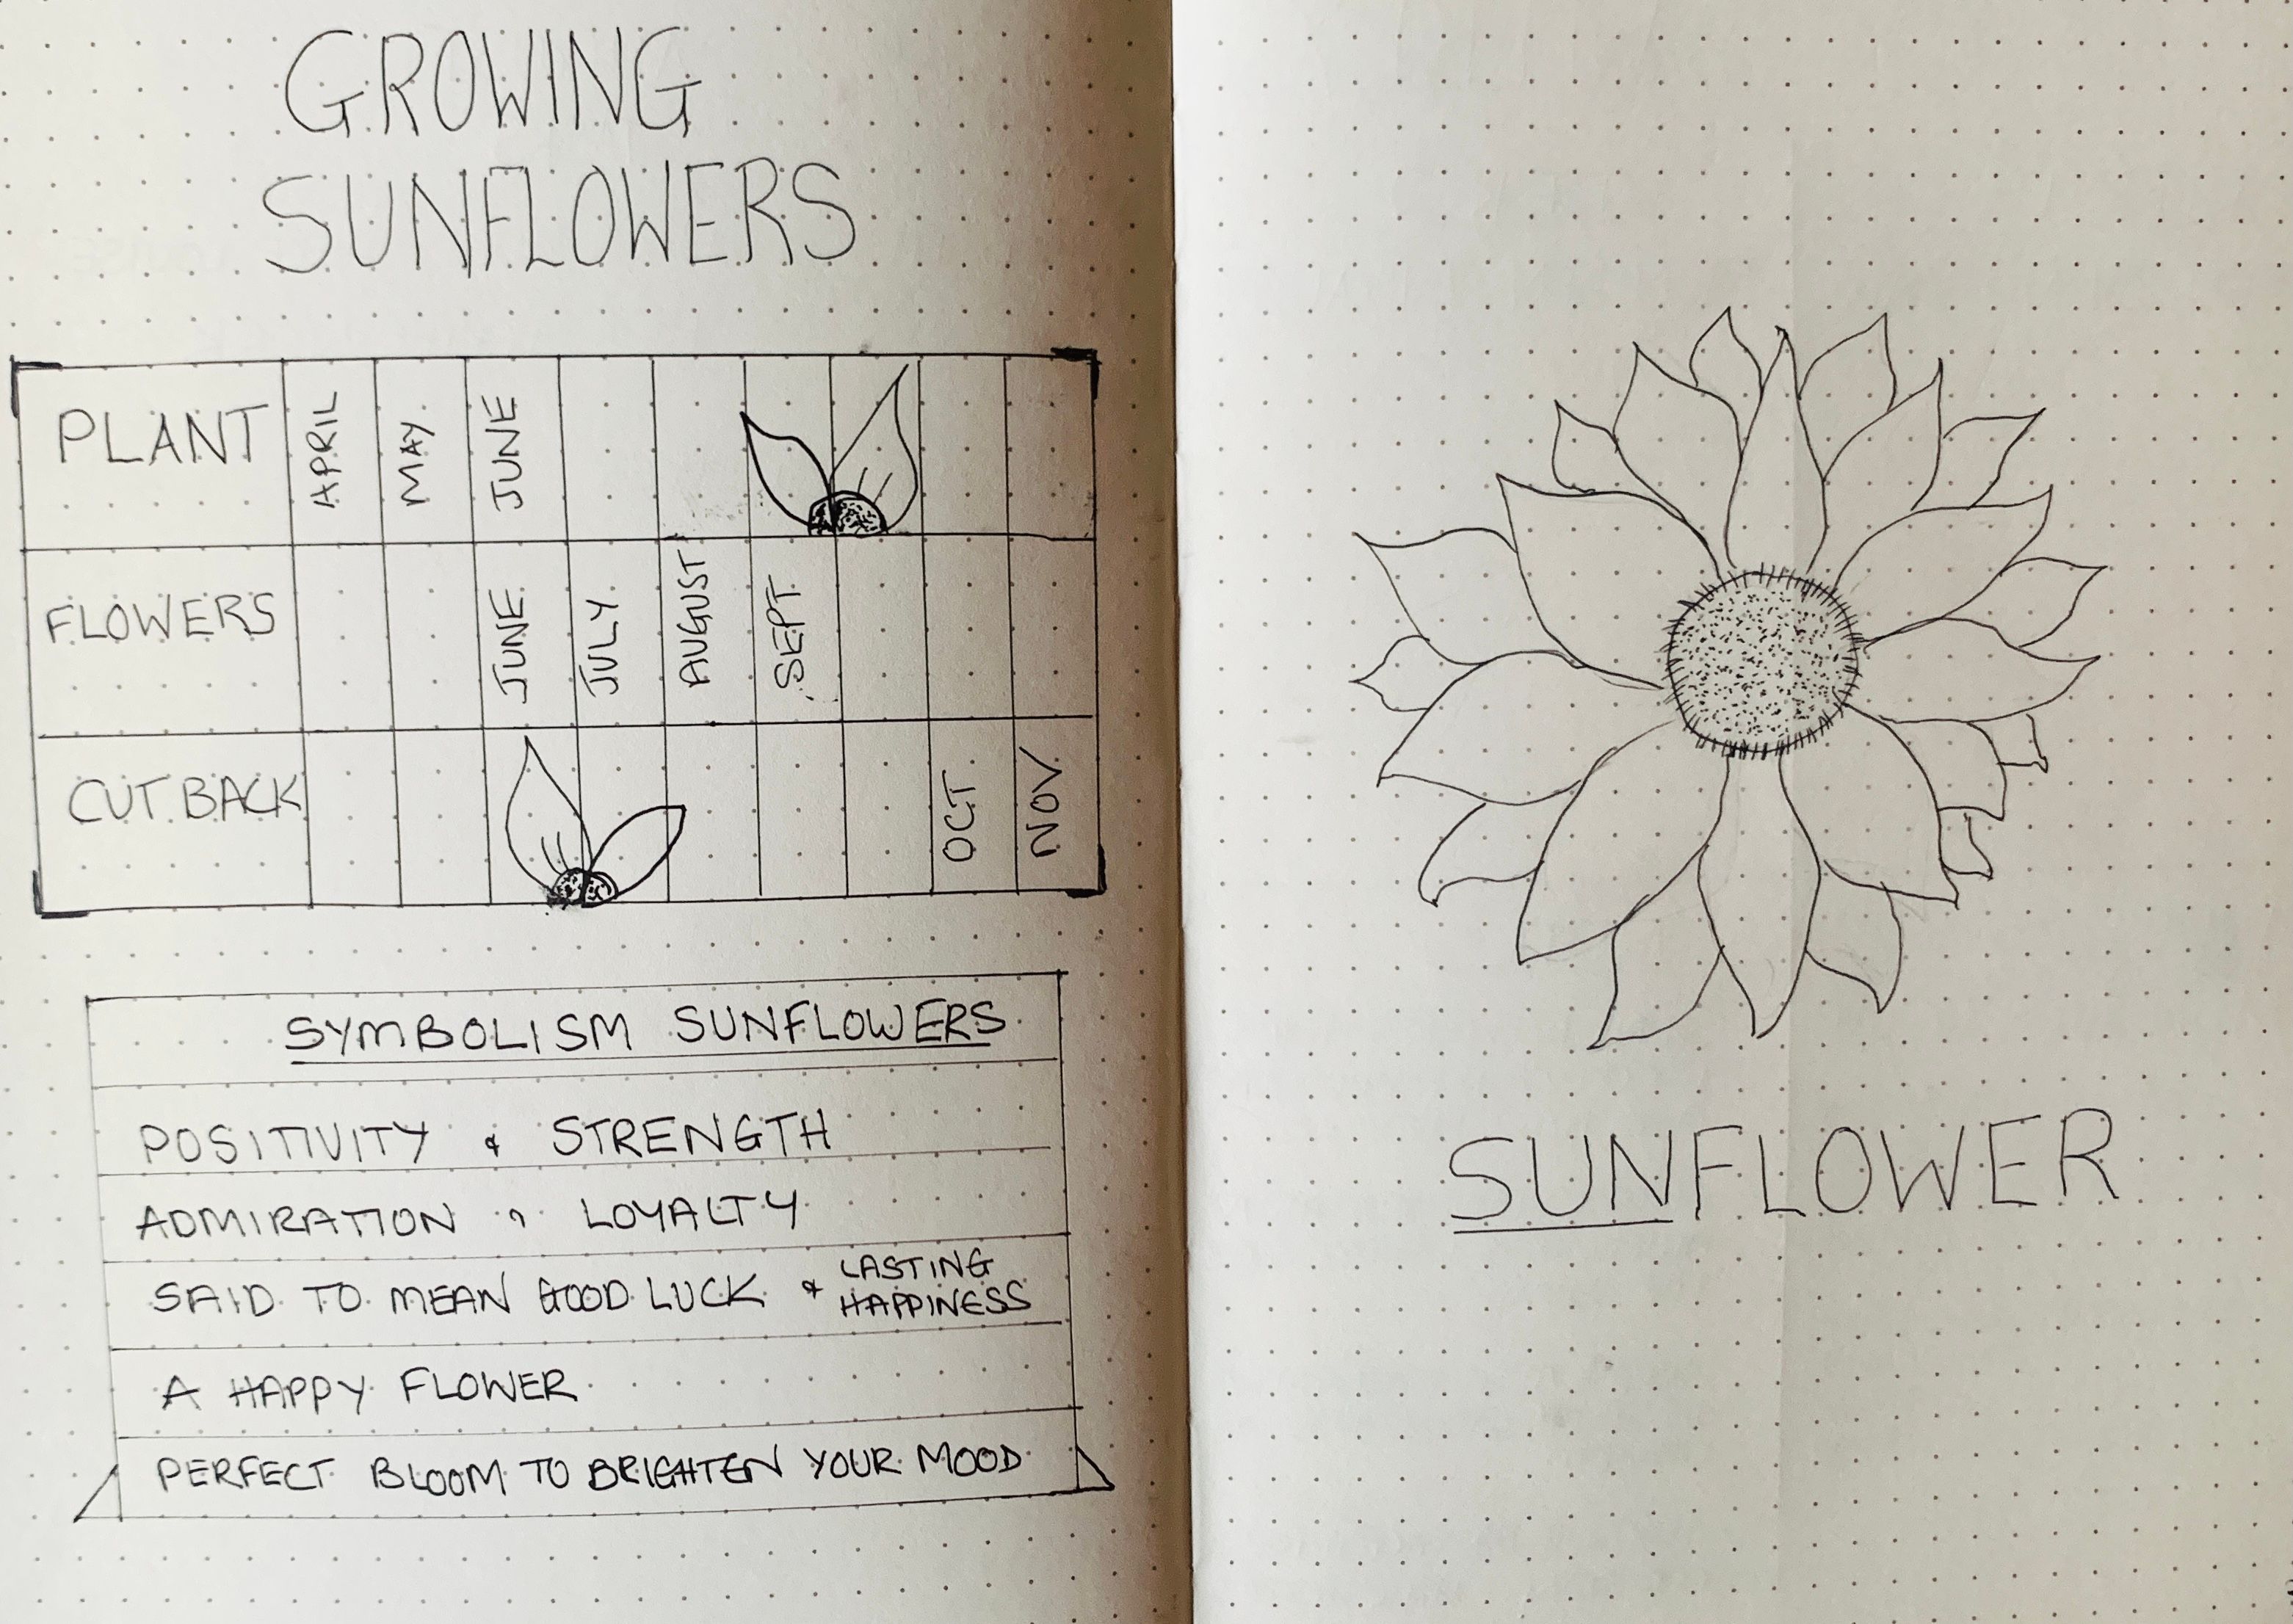 GROWING
SUNFLOWERS
PLANT APRIL MAY JUNE
FLOWERS JUNE JULY AUGUST SEPT.
CUT BACK OCT NOV
SYMBOLISM SUNFLOWERS
POSITIVITY & STRENGTH
ADMIRATION , LOYALTY
SAID TO MEAN GOOD LUCK & LASTING HAPPINESS
A HAPPY FLOWER
PERFECT BLOOM TO BRIGHTEN YOUR MOOD
SUNFLOWER